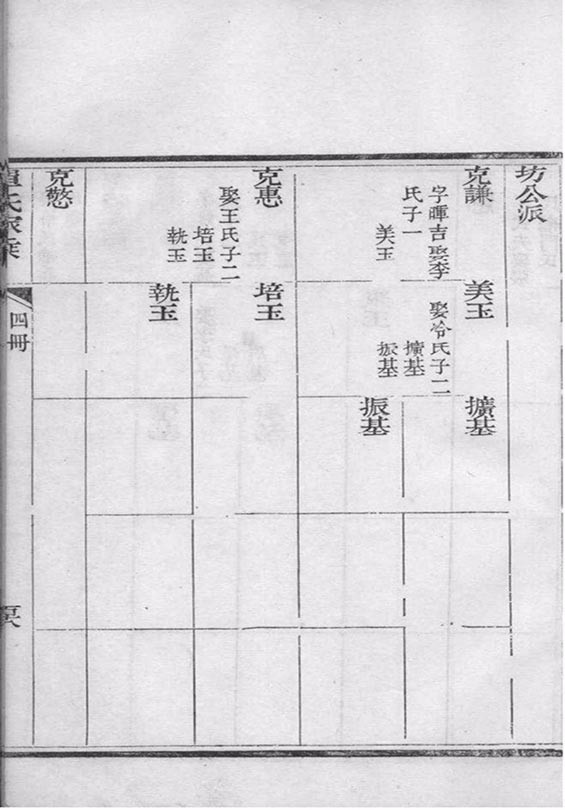 坊公派
克謙
字暉吉娶李
氏子一
美玉
美玉
娶冷氏子二
擴基
振基
擴基
振基
克惠
娶王氏子二
培玉
執玉
培玉
執玉
克憼
氏家乘
四冊